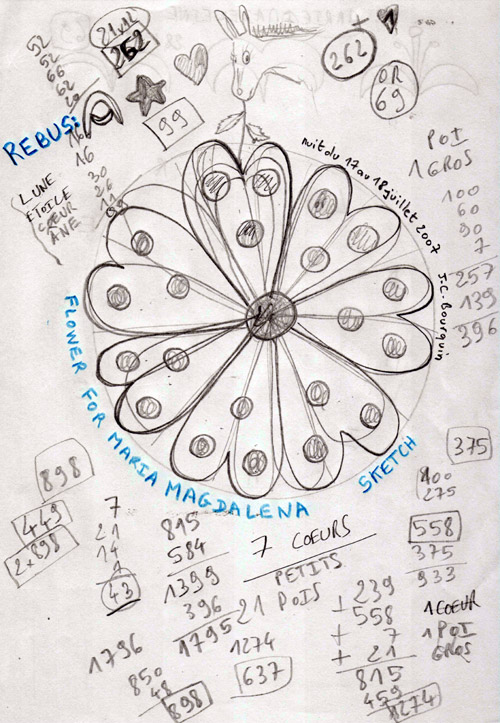 52
52
66
62
21,12
262
262
1
OR
69
99
REBUS:
16
16
30
26
LUNE
ETOILE
CŒUR
ANE
POI
1 GROS
100
60
90
7
257
139
396
nuit du 17 au 18 juillet 2007
J.C. Bourquin
FLOWER FOR MARIA MAGDALENA
SKETCH
375
400
275
558
375
933
898
449
2 x 898
7
21
14
1
43
815
584
1399
396
1795
7 COEURS
PETITS
21 POIS
1274
637
1796
850
48
898
239
+ 558
+ 7
+ 21
815
459
1274
1 COEUR
1 POI
GROS